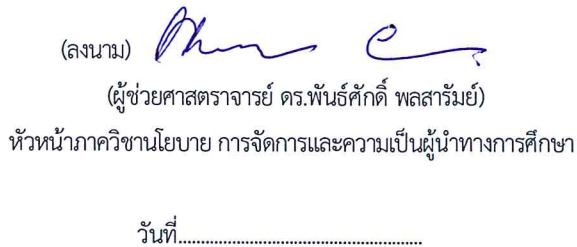 (ลงนาม)
(ผู้ช่วยศาสตราจารย์ ดร.พันธ์ศักดิ์ พลสารัมย์)
หัวหน้าภาควิชานโยบาย การจัดการและความเป็นผู้นำทางการศึกษา
วันที่............................................................